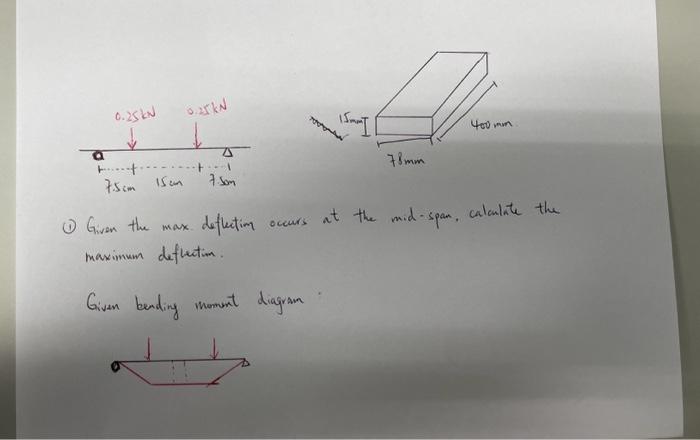 0.25kN 0.25kN
15mm
400mm
78mm
7.5cm 15cm 7.5cm
① Given the max. deflection occurs at the mid-span, calculate the
maximum deflection.
Given bending moment diagram :